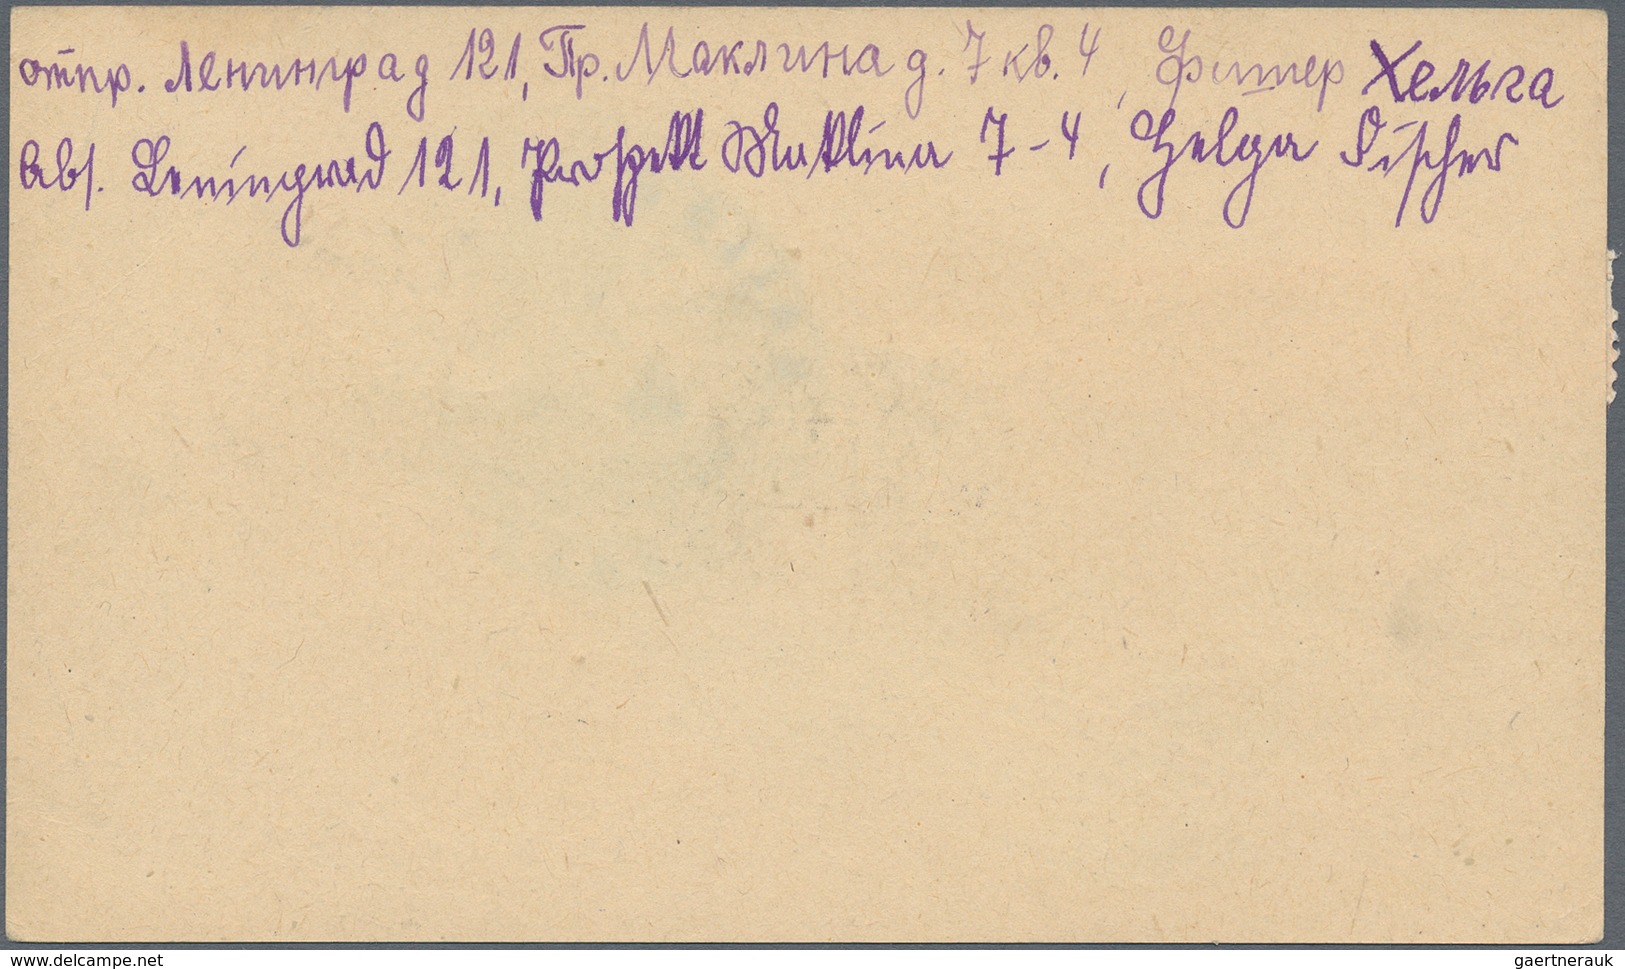 отпр. Ленинград 121, Пр. Маклина д. 7 кв. 4, Фишер Хельга
Abs. Leningrad 121, Prospekt Maklina 7-4, Helga Fischer
delcampe.net
gaertnerauk